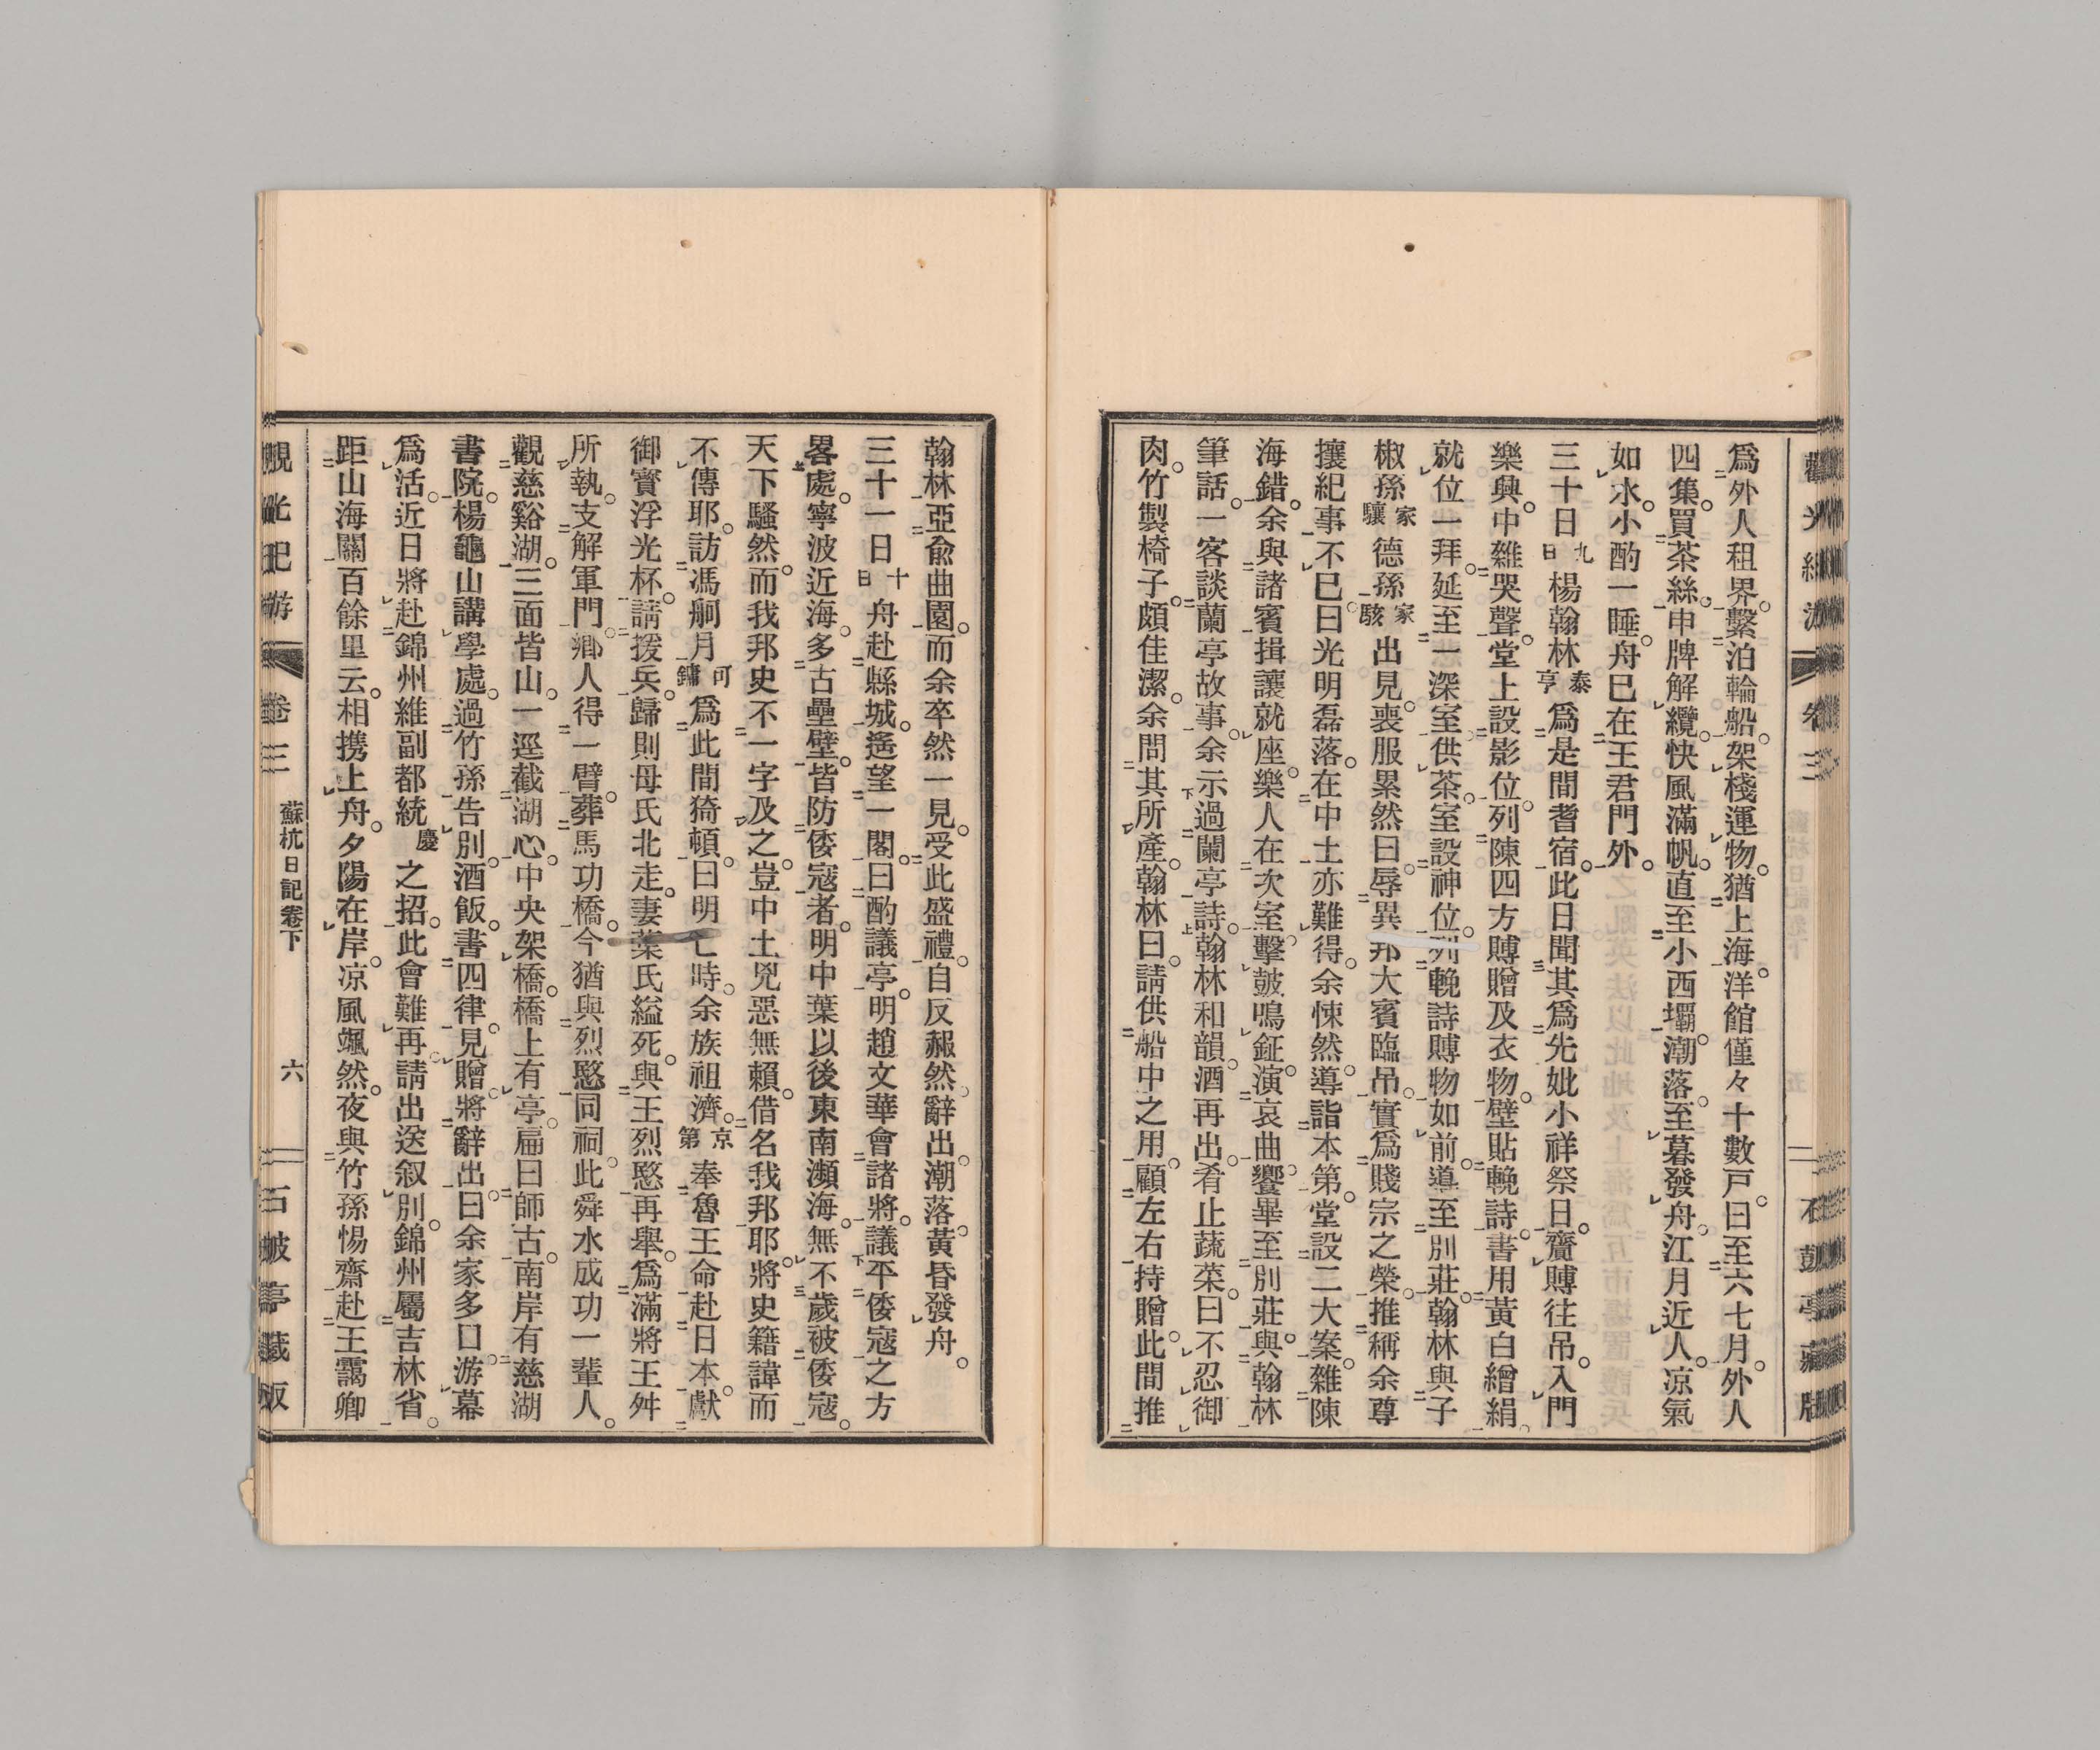 爲外人租界。繫泊輪船。架棧運物。猶上海。洋館僅々十數戸。曰至六七月。外人
四集。買茶絲。申牌解纜。快風滿帆。直至小西壩。潮落。至暮發舟。江月近人。凉氣
如水。小酌一睡。舟已在王君門外。
三十日九日楊翰林泰亨爲是間耆宿。此日聞其爲先妣小祥祭日。齎賻往吊。入門
樂興。中雜哭聲。堂上設影位。列陳四方賻贈及衣物。壁貼輓詩。書用黃白繒絹。
就位一拜。延至一深室。供茶。室設神位。列輓詩賻物如前。導至別莊。翰林與子
椒孫家驤德孫家駿出見。喪服累然。曰辱異邦大賓臨吊。實爲賤宗之榮。推稱余尊
攘紀事不已。曰光明磊落。在中土亦難得。余悚然。導詣本第。堂設二大案。雜陳
海錯。余與諸賓揖讓就座。樂人在次室。擊鼓鳴鉦。演哀曲。饗畢至別莊。與翰林
筆話。一客談蘭亭故事。余示過蘭亭詩。翰林和韻。酒再出。肴止蔬菜。曰不忍御
肉。竹製椅子。頗佳潔。余問其所產。翰林曰。請供船中之用。顧左右持贈。此間推
觀光紀游 卷三 蘇杭日記卷下 六 石皷亭藏版
翰林亞兪曲園。而余卒然一見。受此盛禮。自反赧然。辭出。潮落。黃昏發舟。
三十一日十日舟赴縣城。遙望一閣。曰酌議亭。明趙文華會諸將。議平倭寇之方
畧處。寧波近海。多古壘壁。皆防倭寇者。明中葉以後。東南瀕海。無不歲被倭寇。
天下騷然。而我邦史不一字及之。豈中土兇惡無賴。借名我邦耶。將史籍諱而
不傳耶。訪馮舸月可鏞爲此間猗頓。曰明亡時。余族祖濟。京第奉魯王命赴日本。獻
御賓浮光杯。請援兵。歸則母氏北走。妻葉氏縊死。與王烈愍再舉。爲滿將王舛
所執。支解軍門。鄉人得一臂。葬馬功橋。今猶與烈愍同祠。此舜水成功一輩人。
觀慈谿湖。三面皆山。一逕截湖心。中央架橋。橋上有亭。扁曰師古。南岸有慈湖
書院。楊龜山講學處。過竹孫告別。酒飯。書四律。見贈。將辭出。曰余家多口。游幕
爲活。近日將赴錦州維副都統慶之招。此會難再。請出送叙別。錦州屬吉林省。
距山海關百餘里云。相携上舟。夕陽在岸。凉風颯然。夜與竹孫惕齋赴王靄卿